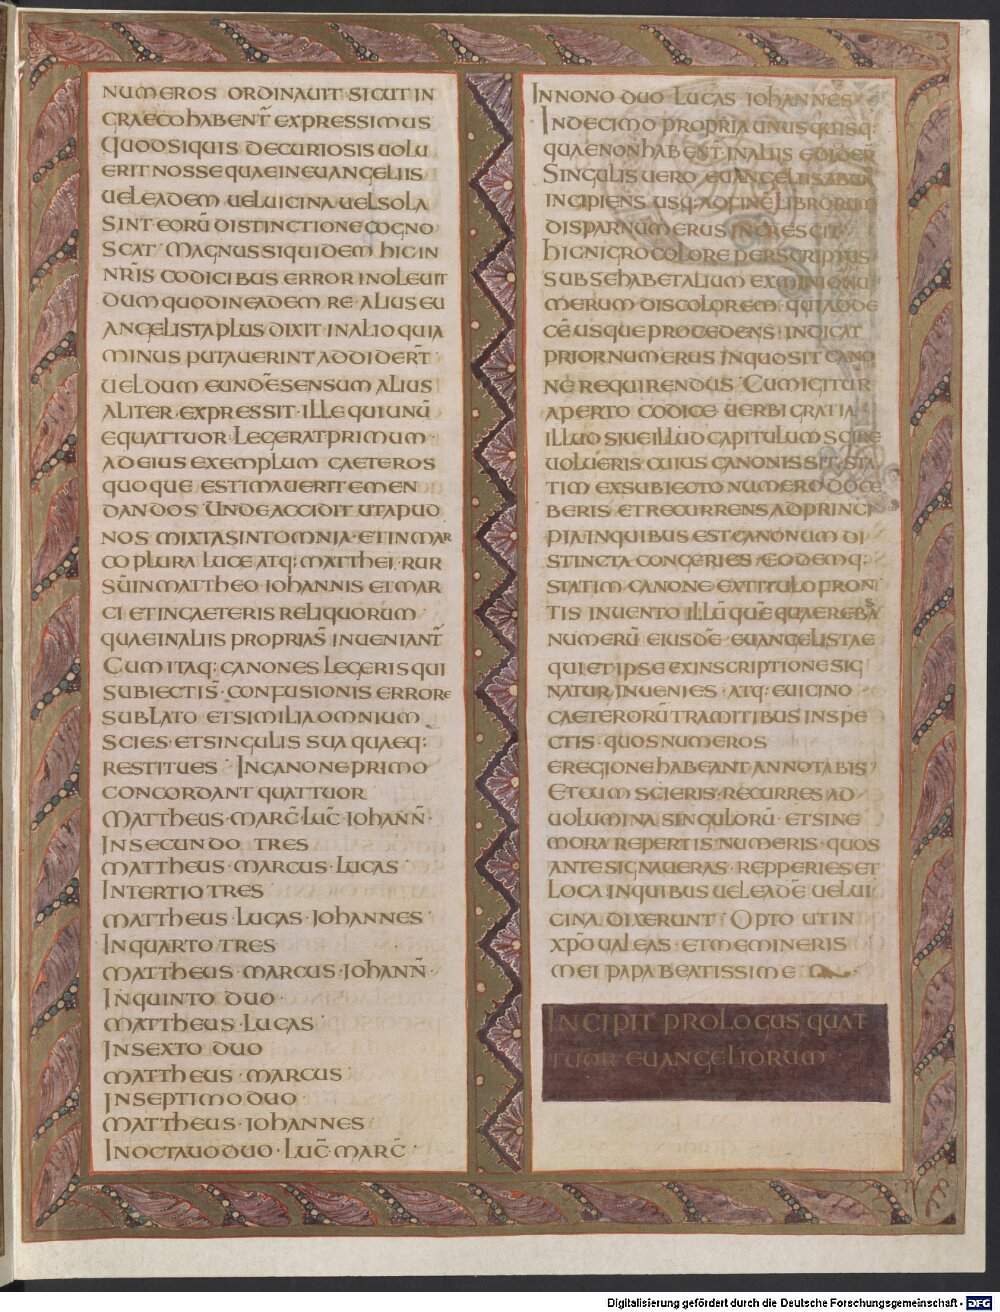 NUMEROS ORDINAUIT·SICUT IN
GRAECO HABENT̄ EXPRESSIMUS
QUOD SIQUIS DECURIOSIS UOLU
ERIT NOSSE QUAE IN EUANGELIIS
UEL EADEM UEL UICINA UEL SOLA
SINT·EORŪ DISTINCTIONE COGNO
SCAT· MAGNUS SIQUIDEM HIC IN
NR̄IS CODICIBUS ERROR INOLEUIT
DUM QUOD IN EADEM RE·ALIUS EU
ANGELISTA PLUS DIXIT IN ALIO QUIA
MINUS PUTAUERINT ADDIDER̄T
UEL DUM EUNDĒ SENSUM ALIUS
ALITER EXPRESSIT·ILLE QUI UNŪ
EQUATTUOR·LEGERAT PRIMUM·
AD EIUS EXEMPLUM CAETEROS
QUOQUE ESTIMAUERIT EMEN
DANDOS UNDE ACCIDIT UT APUD
NOS MIXTA SINT OMNIA·ET IN MAR
CO PLURA LUCE ATQ; MATTHEI·RUR
SŪ IN MATTHEO·IOHANNIS ET MAR
CI ET IN CAETERIS RELIQUORUM
QUAE IN ALIIS PROPRIA S̄ INUENIANT̄
CUM ITAQ; CANONES LEGERIS QUI
SUBIECTI S̄·CONFUSIONIS ERRORE
SUBLATO ET SIMILIA OMNIUM
SCIES·ET SINGULIS SUA QUAEQ;
RESTITUES· IN CANONE PRIMO
CONCORDANT QUATTUOR
MATTHEUS·MARC̄·LUC̄·IOHANN̄·
IN SECUNDO TRES
MATTHEUS·MARCUS·LUCAS
IN TERTIO TRES
MATTHEUS·LUCAS·IOHANNES·
IN QUARTO TRES
MATTHEUS·MARCUS·IOHANN̄·
IN QUINTO DUO·
MATTHEUS·LUCAS·
IN SEXTO DUO
MATTHEUS·MARCUS·
IN SEPTIMO DUO·
MATTHEUS·IOHANNES·
IN OCTAUO DUO·LUC̄·MARC̄·
IN NONO DUO LUCAS IOHANNES
IN DECIMO PROPRIA UNUSQUISQ;
QUAE NON HABENT̄ IN ALIIS EDIDER̄
SINGULIS UERO EUANGELIIS AB UNO
INCIPIENS USQ; AD FINĒ LIBRORUM
DISPAR NUMERUS INCRESCIT
HIC NIGRO COLORE PERSCRIPTUS
SUB SE HABET ALIUM EX MINIO NU
MERUM DISCOLOREM·QUI AD DE
CĒ USQUE PROCEDENS·INDICAT
PRIOR NUMERUS IN QUO SIT CANO
NE REQUIRENDUS· CUM IGITUR
APERTO CODICE UERBI GRATIA
ILLUD SIUE ILLUD CAPITULUM SCIRE
UOLUERIS CUIUS CANONIS SIT·STA
TIM EX SUBIECTO NUMERO DOCE
BERIS·ET RECURRENS AD PRINCI
PIA IN QUIBUS EST CANONUM DI
STINCTA CONGERIES·EODEMQ;
STATIM CANONE EX TITULO FRON
TIS INUENTO ILLŪ QUĒ QUAEREBAS
NUMERŪ EIUSDĒ EUANGELISTAE
QUI ET IPSE EX INSCRIPTIONE SIG
NATUR INUENIES·ATQ; E UICINO
CAETERORŪ TRAMITIBUS INSPE
CTIS·QUOS NUMEROS
E REGIONE HABEANT ANNOTABIS
ET CUM SCIERIS·RECURRES AD
UOLUMINA SINGULORŪ·ET SINE
MORA REPERTIS NUMERIS·QUOS
ANTE SIGNAUERAS·REPPERIES ET
LOCA IN QUIBUS UEL EADĒ UEL UI
CINA DIXERUNT· OPTO UT IN
XP̄O UALEAS·ET MEMINERIS
MEI PAPA BEATISSIME
INCIPIT PROLOGUS QUAT
TUOR EUANGELIORUM
Digitalisierung gefördert durch die Deutsche Forschungsgemeinschaft - DFG